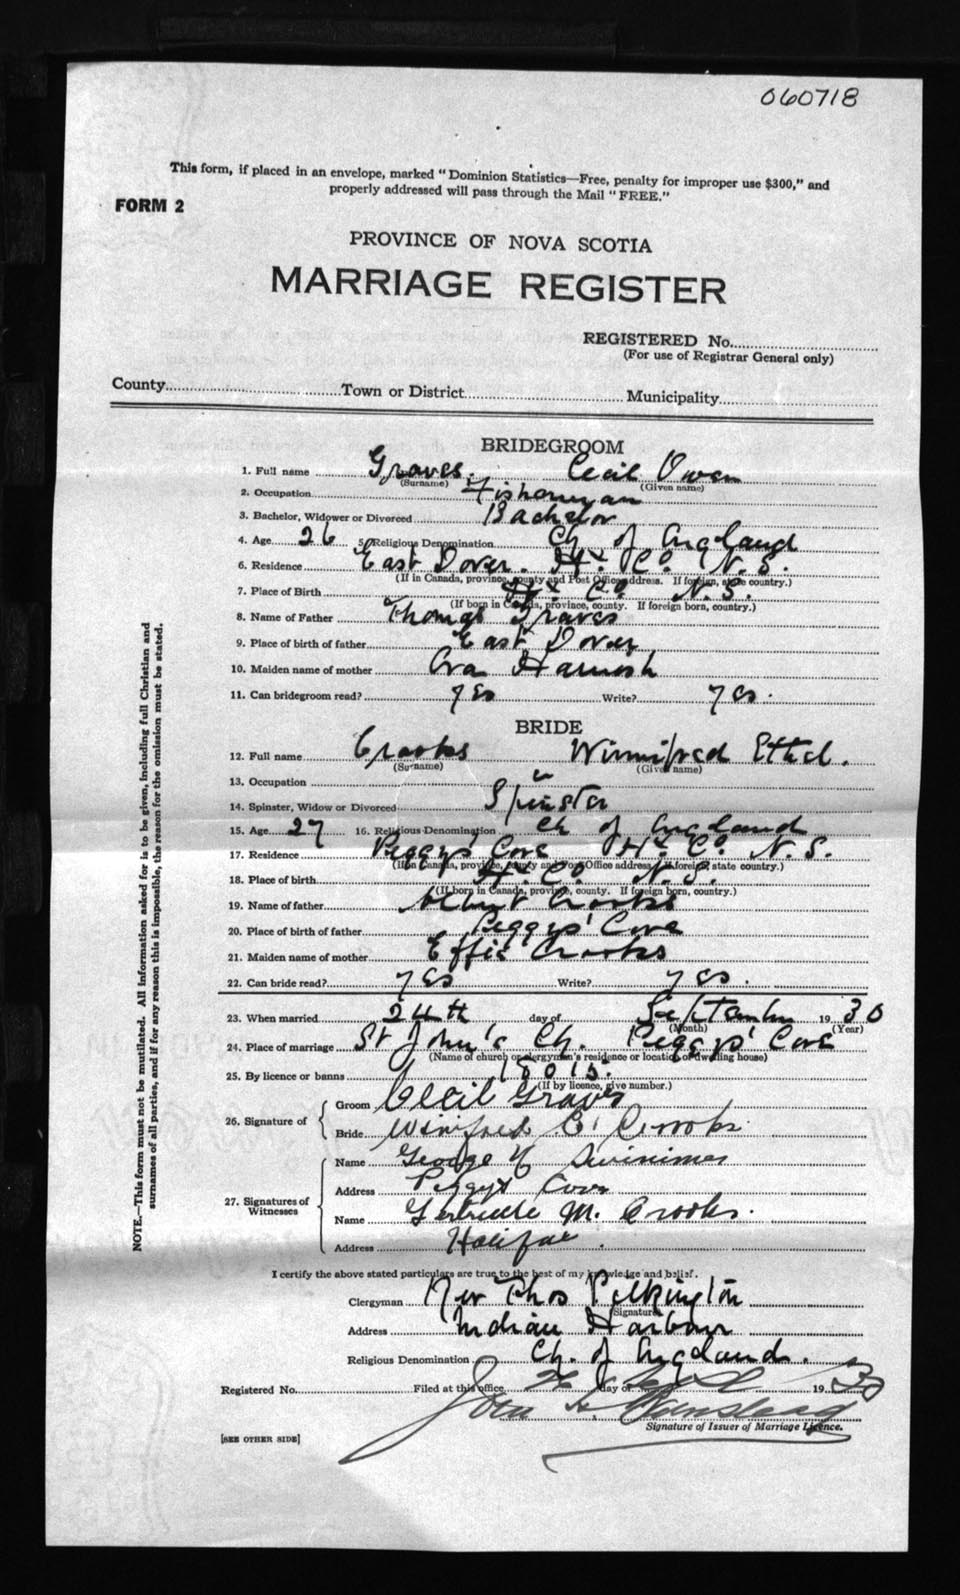 060718
This form, if placed in an envelope, marked "Dominion Statistics—Free, penalty for improper use $300," and
properly addressed will pass through the Mail "FREE."
FORM 2
PROVINCE OF NOVA SCOTIA
MARRIAGE REGISTER
REGISTERED No.
(For use of Registrar General only)
County Town or District Municipality
BRIDEGROOM
1. Full name Graves. Cecil Owen
(Surname) (Given name)
2. Occupation Fisherman
3. Bachelor, Widower or Divorced Bachelor
4. Age 26 5. Religious Denomination Ch of England
6. Residence East Dover. Hx. Co. N. S.
(If in Canada, province, county and Post Office address. If foreign, state country.)
7. Place of Birth Hx Co N. S.
(If born in Canada, province, county. If foreign born, country.)
8. Name of Father Thomas Graves
9. Place of birth of father East Dover
10. Maiden name of mother Harnish
11. Can bridegroom read? yes Write? yes.
BRIDE
12. Full name Crooks Winnifred Ethel.
(Surname) (Given name)
13. Occupation "
14. Spinster, Widow or Divorced Spinster
15. Age 27 16. Religious Denomination Ch of England
17. Residence Peggys' Cove Hx Co. N. S.
(If in Canada, province, county and Post Office address. If foreign, state country.)
18. Place of birth Hx. Co N. S.
(If born in Canada, province, county. If foreign born, country.)
19. Name of father Albert Crooks
20. Place of birth of father Peggys' Cove
21. Maiden name of mother Effie Crooks
22. Can bride read? yes Write? yes.
23. When married 24th day of September 1930
(Month) (Year)
24. Place of marriage St John's Ch. Peggys' Cove
(Name of church or clergyman's residence or location of dwelling house)
25. By licence or banns 18015.
(If by licence, give number.)
26. Signature of Groom Cecil Graves
Bride Winifred E. Crooks
27. Signatures of Witnesses
Name George
Address Peggys Cove
Name Gertrude M. Crooks.
Address Halifax.
I certify the above stated particulars are true to the best of my knowledge and belief.
Clergyman Rev Thos Pilkington
(Signature)
Address Indian Harbour
Religious Denomination Ch. of England.
Registered No. Filed at this office 26 day of 1930
John H.
Signature of Issuer of Marriage Licence.
[SEE OTHER SIDE]
NOTE.—This form must not be mutilated. All information asked for is to be given, including full Christian and
surnames of all parties, and if for any reason this is impossible, the reason for the omission must be stated.